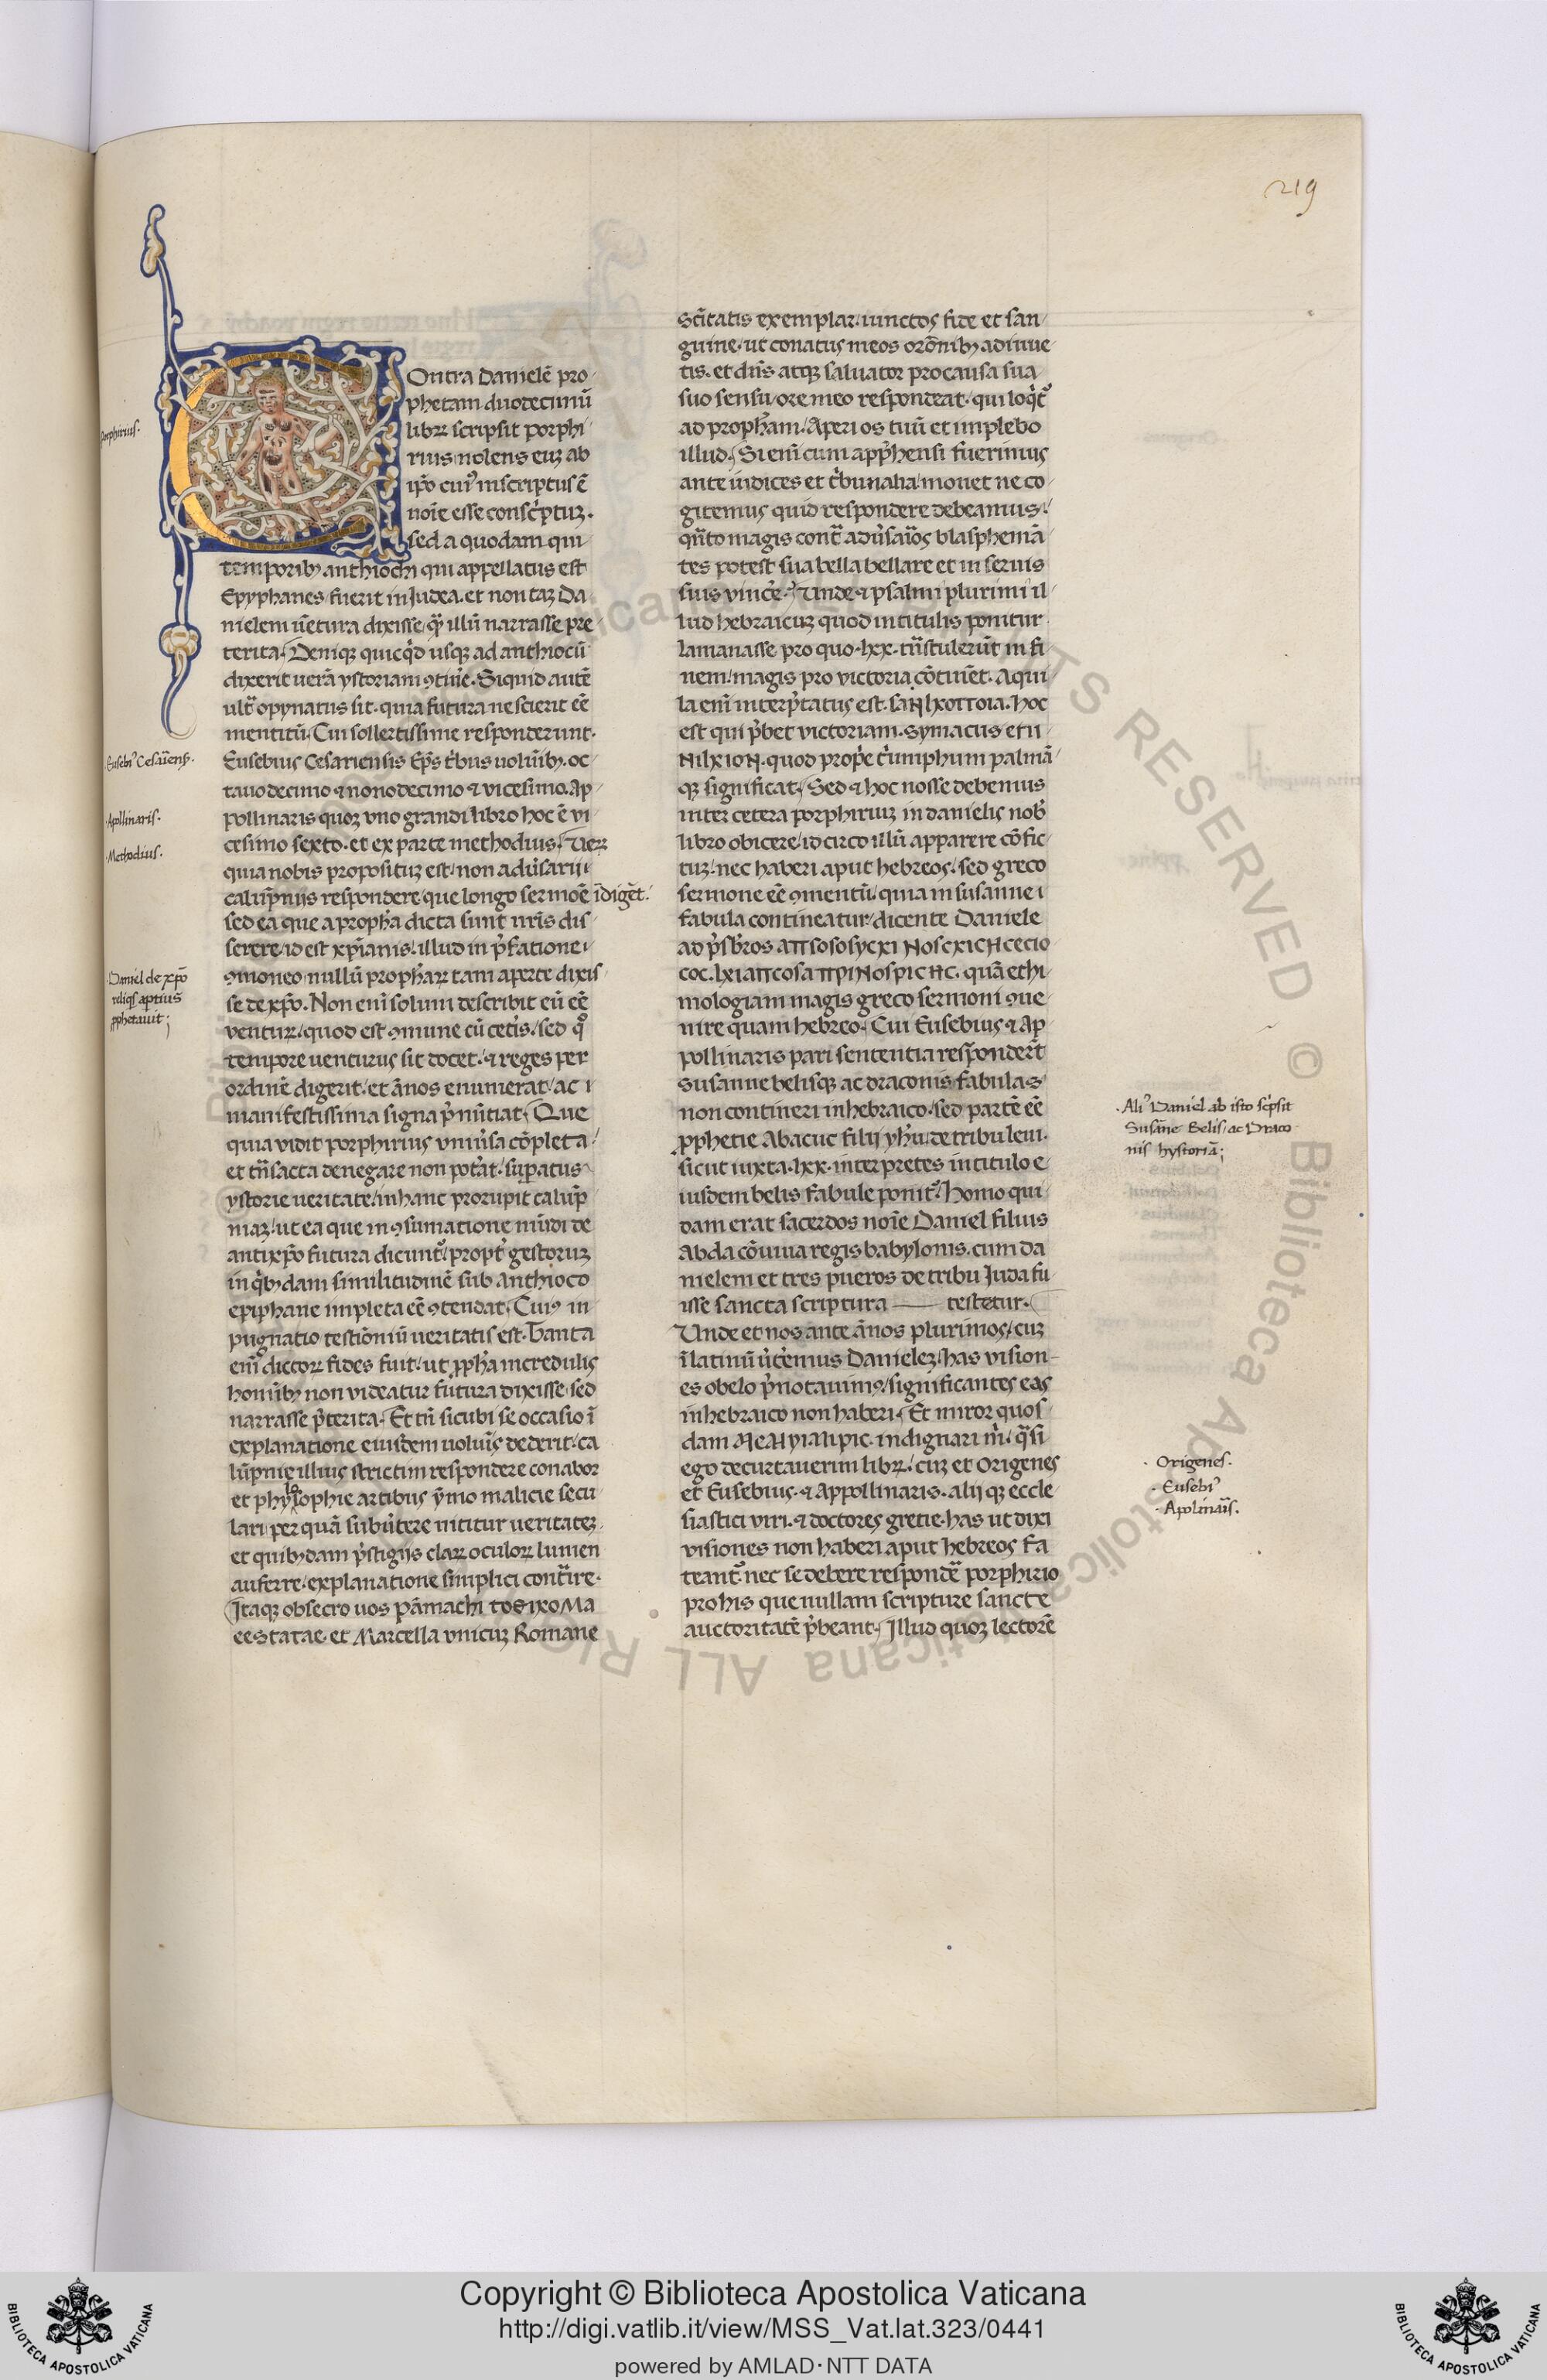 219
Ontra Danielē pro
phetam duodecimū
libꝝ scripsit porphi
rius nolens euꝫ ab
ip̄o cuiꝰ inscriptus ē
noīe esse conscͥptuꝫ.
sed a quodam qui
temporibꝫ anthiochi qui appellatus est
Epyphanes fuerit in Iudea. et non taꝫ Da
nielem uētura dixisse qͣꝫ illū narrasse pre
terita. Deniqꝫ quicqͥd usqꝫ ad anthiocū
dixerit uerā ystoriam ꝯtinͤe. Siquid autē
ultͣ opynatus sit. quia futura nescierit eē
mentitū. Cui sollertissime responderunt.
Eusebius Cesariensis Ep̄s tͥbus uolūībꝫ. oc
tauodecimo & nonodecimo & uicesimo. Ap
pollinaris quoqꝫ vno grandi libro hoc ē vi
cesimo sexto. et ex parte methodius. Ueꝝ
quia nobis propositūꝫ est non aduͥsarii
calūpniis respondere que longo sermōē īdigēt.
sed ea que a prophͣ dicta sunt nr̄is dis
serere id est xp̄ianis. illud in p̄fatione
ꝯmoneo nullū prophͣꝝ tam aperte dixis
se de xp̄o. Non enī solum describit eū eē
venturꝝ quod est ꝯmune cū cetͥs. sed qͦ
tempore uenturus sit docet. & reges per
ordinē digerit et ānos enumerat ac
manifestissima signa p̄nūtiat. Que
quia vidit porphirius vniuͥsa cōpleta
et trͣsacta denegare non potͣat. suꝑatus
ystorie ueritate in hanc prorupit calūp
niaꝫ ut ea que in ꝯsumatione mūdi de
antixp̄o futura dicuntꝰ proptͥ gestoruꝫ
in qͥbꝫdam similitudinē sub anthioco
epiphane impleta eē ꝯtendat. Cuiꝰ in
pugnatio testīoniū ueritatis est. Tanta
enī dictoꝝ fides fuit ut ꝓphͣ incredulis
homībꝫ non videatur futura dixisse sed
narrasse p̄terita. Et tn̄ sicubi se occasio ī
explanatione eiusdem uolumīs dederit ca
lūpnie illius strictim respondere conabor
et phylosophie artibus ymo malicie secu
lari per quā subuͥtere nititur ueritateꝫ
et quibꝫdam p̄stigiis claꝝ oculoꝝ lumen
auferre explanatione simplici contͣire.
Itaqꝫ obsecro uos pāmachi τοσιχομα
εεστατae. et Marcella vnicuꝫ Romane
scītatis exemplar. iunctos fide et san
guine. ut conatus meos orōnibꝫ adiuue
tis. et dn̄s atqꝫ saluator pro causa sua
suo sensu ore meo respondeat. qui loqͥtꝰ
ad prophͣam. Aperi os tuū et implebo
illud. Si enī cum apprͥhensi fuerimus
ante iudices et tͥbunalia monet ne co
gitemus quid respondere debeamus
qͣnto magis contͣ aduͥsaͥos blasphemā
tes potest sua bella bellare et in seruis
suis vincͤe. Unde & psalmi plurimi il
lud hebraicuꝫ quod in titulis ponitur
lamanasse pro quo .lxx. trͣstulerūt in fi
nem magis pro victoria cōtinēt. Aqui
la enī interp̄tatus est. ΤωΝlΧΟΠΟΙΑ. hoc
est qui p̄bet victoriam. Symacus ΕΠΙ
ΝΙΚΙΟΝ. quod prop̄e tͥumphum palmā
qꝫ significat. Sed & hoc nosse debemus
inter cetera porphiriuꝫ in danielis nobͥ
libro obicere idcirco illū apparere cōfic
tuꝫ nec haberi aput hebreos. sed greco
sermone eē ꝯmentū. quia in susanne
fabula contineatur dicente Daniele
ad p̄sbr̄os αποσοσycxi Νοscxicн cecio
coc. lxiαπcosα πpiΝospicнc. quā ethi
mologiam magis greco sermoni ꝯue
nire quam hebreo. Cui Eusebius & Ap
pollinaris pari sententia respondert̄
Susanne belisqꝫ ac draconis fabulas
non contineri in hebraico. sed partē eē
ꝓphetie Abacuc filij yhͥu de tribu leui.
sicut iuxta .lxx. interpretes in titulo e
iusdem belis fabule ponitꝰ. Homo qui
dam erat sacerdos noīe Daniel filius
Abda cōuiua regis babylonis. cum da
nielem et tres pueros de tribu Iuda fu
isse sancta scriptura — testetur.
Unde et nos ante ānos plurimos cuꝫ
ī latinū uͥtēmus Danieleꝫ has vision-
es obelo p̄notauimꝰ significantes eas
in hebraico non haberi. Et miror quos
dam ΜΕΜΨΙΜΙΡΙC. indignari mͥ qͣsi
ego decurtauerim libꝝ. cuꝫ et Origenes
et Eusebius. & Appollinaris. alij qꝫ eccle
siastici viri. & doctores gretie. has ut dixi
visiones non haberi aput hebreos fa
teantꝰ nec se debere respondē porphirio
pro his que nullam scripture sancte
auctoritatē p̄beant. Illud quoqꝫ lectorē
Porphirius.
Eusebiꝰ Cesaīens̄.
Apollinaris.
Methodius.
Daniel de xp̄o
reliqͥs aptius
ꝓphetauit;
Aliꝰ Daniel ab isto scͥpsit
Susāne Belis/ ac Draco
nis hystoriā;
Origenes.
Eusebiꝰ
Apolinaīs.
Copyright © Biblioteca Apostolica Vaticana
http://digi.vatlib.it/view/MSS_Vat.lat.323/0441
powered by AMLAD·NTT DATA
BIBLIOTECA APOSTOLICA VATICANA
BIBLIOTECA APOSTOLICA VATICANA